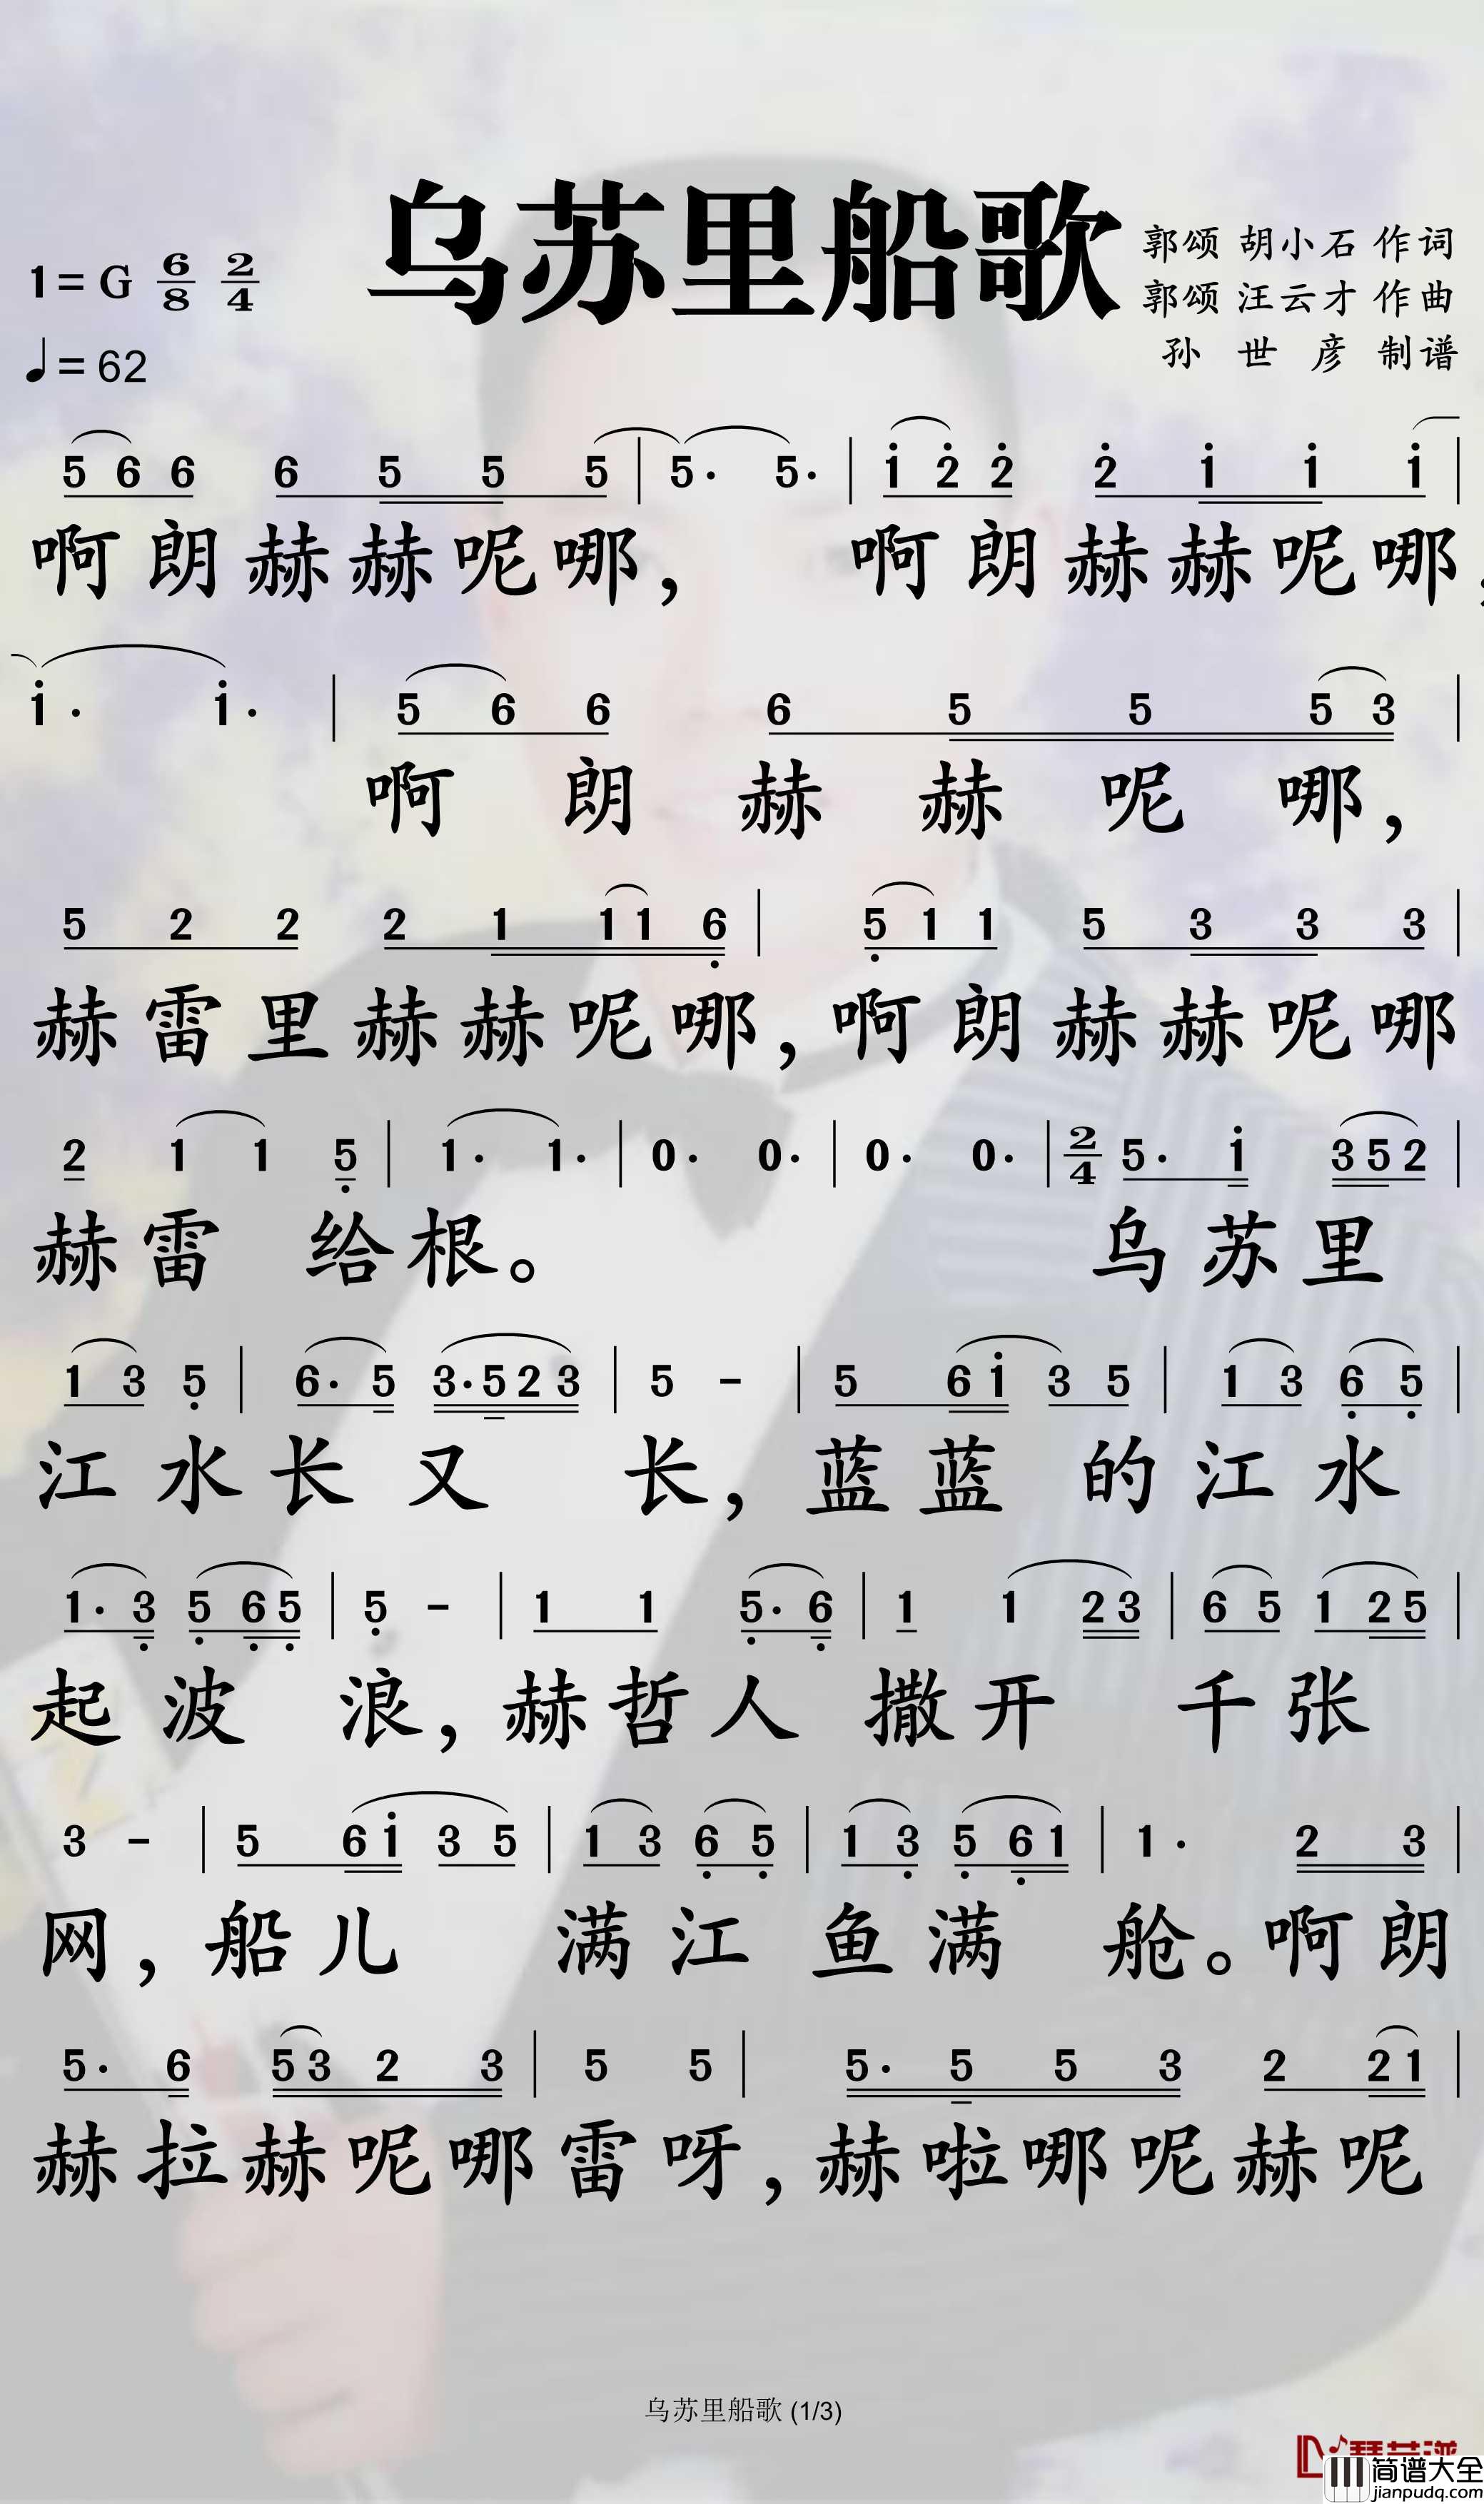 乌苏里船歌
1=G 6/8 2/4
♩=62
郭颂 胡小石 作词
郭颂 汪云才 作曲
孙世彦 制谱
5 6 6 6 5 5 5 | 5· 5· | i 2̇ 2̇ 2̇ i i i |
啊朗赫赫呢哪， 啊朗赫赫呢哪，
i· i· | 5 6 6 6 5 5 5 3 |
啊朗赫赫呢哪，
5 2 2 2 1 1 1 6̣ | 5̣ 1 1 5 3 3 3 |
赫雷里赫赫呢哪，啊朗赫赫呢哪
2 1 1 5̣ | 1· 1· | 0· 0· | 0· 0· | 2/4 5· i 3 5 2 |
赫雷 给根。 乌苏里
1 3 5̣ | 6· 5 3·5 2 3 | 5 - | 5 6 i 3 5 | 1 3 6̣ 5̣ |
江水长又 长，蓝蓝 的江水
1· 3̣ 5̣ 6̣ 5̣ | 5̣ - | 1 1 5̣· 6̣ | 1 1 2 3 | 6 5 1 2 5 |
起波 浪，赫哲人 撒开 千张
3 - | 5 6 i 3 5 | 1 3 6̣ 5̣ | 1 3̣ 5̣ 6̣ 1 | 1· 2 3 |
网，船儿 满江鱼满 舱。啊朗
5· 6 5 3 2 3 | 5 5 | 5· 5 5 3 2 2 1 |
赫拉赫呢哪雷呀，赫啦哪呢赫呢
乌苏里船歌 (1/3)
简谱大全
jianpudq.com